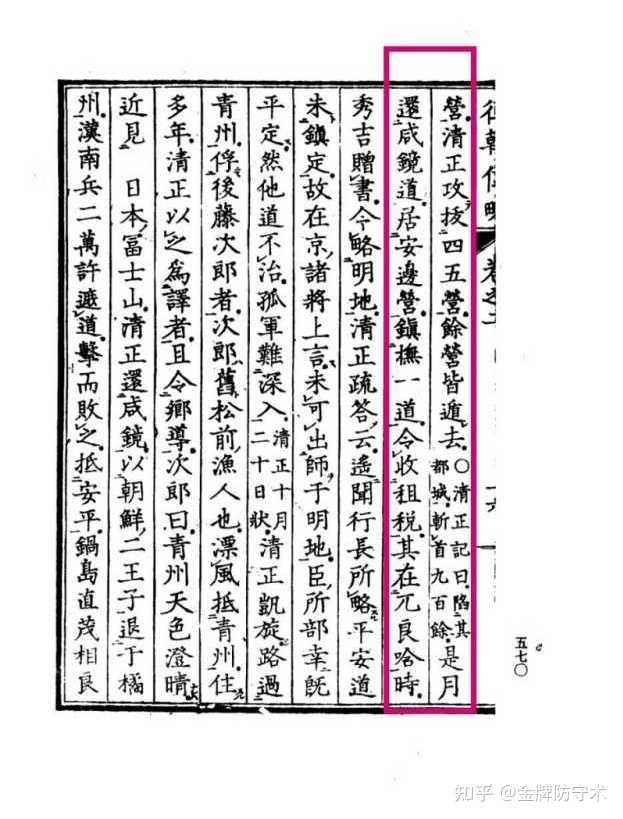 營清正攻拔四五營餘營皆遁去。○清正記曰陷其都城斬首九百餘是月
還咸鏡道居安邊營鎮撫一道令收租稅其在兀良哈時
秀吉贈書令略明地清正疏答云遙聞行長所略平安道
未鎮定故在京諸將上言未可出師于明地臣所部幸既
平定然他道不治孤軍難深入清正十月二十日狀清正凱旋路過
青州俘後藤次郎者次郎舊松前漁人也漂風抵青州住
多年清正以之爲譯者且令鄉導次郎曰青州天色澄晴
近見 日本冨士山清正還咸鏡以朝鮮二王子退于橘
州漢南兵二萬許遮道擊而敗之抵安平鍋島直茂相良
五七〇
知乎 @金牌防守术